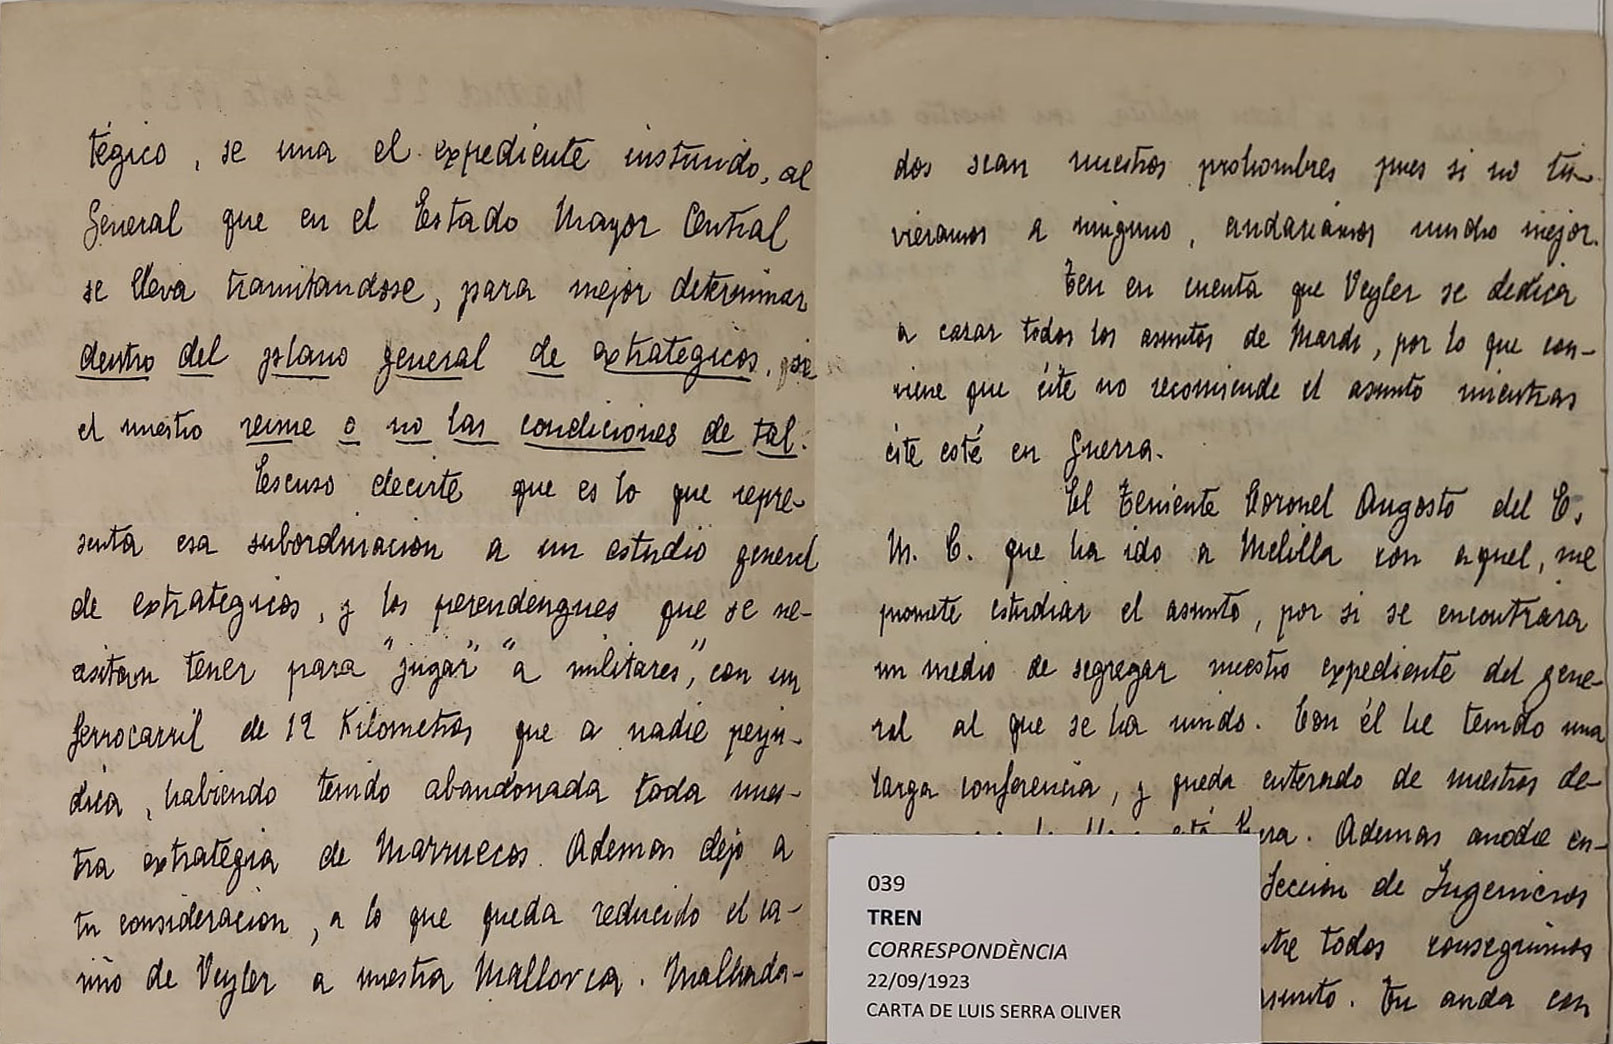 tégico, se una el expediente instruido, al
General que en el Estado Mayor Central
se lleva tramitandose, para mejor determinar
dentro del plano general de extrategicos, si
el nuestro reune o no las condiciones de tal.
Escuso decirte que es lo que repre-
senta esa subordinacion a un estudio general
de extrategicos, y los perendengues que se ne-
cesitan tener para "jugar" "a militares", con un
ferrocarril de 12 Kilometros que a nadie perju-
dica, habiendo tenido abandonada toda nues-
tra extrategia de Marruecos. Ademas dejo a
tu consideracion, a lo que queda reducido el ca-
riño de Veyler a nuestra Mallorca. Malhada-
dos sean nuestros prohombres pues si no tu-
vieramos a ninguno, andariamos mucho mejor.
Ten en cuenta que Veyler se dedica
a cazar todos los asuntos de March, por lo que con-
viene que éste no recomiende el asunto mientras
éste esté en Guerra.
El Teniente Coronel Augosto del E.
M. C. que ha ido a Melilla con aquel, me
promete estudiar el asunto, por si se encontrara
un medio de segregar nuestro expediente del gene-
ral al que se ha unido. Con él he tenido una
larga conferencia, y queda enterado de nuestros de-
Ademas anodie en-
Sección de Ingenieros
todos conseguimos
asunto. Tu anda con
039
TREN
CORRESPONDÈNCIA
22/09/1923
CARTA DE LUIS SERRA OLIVER